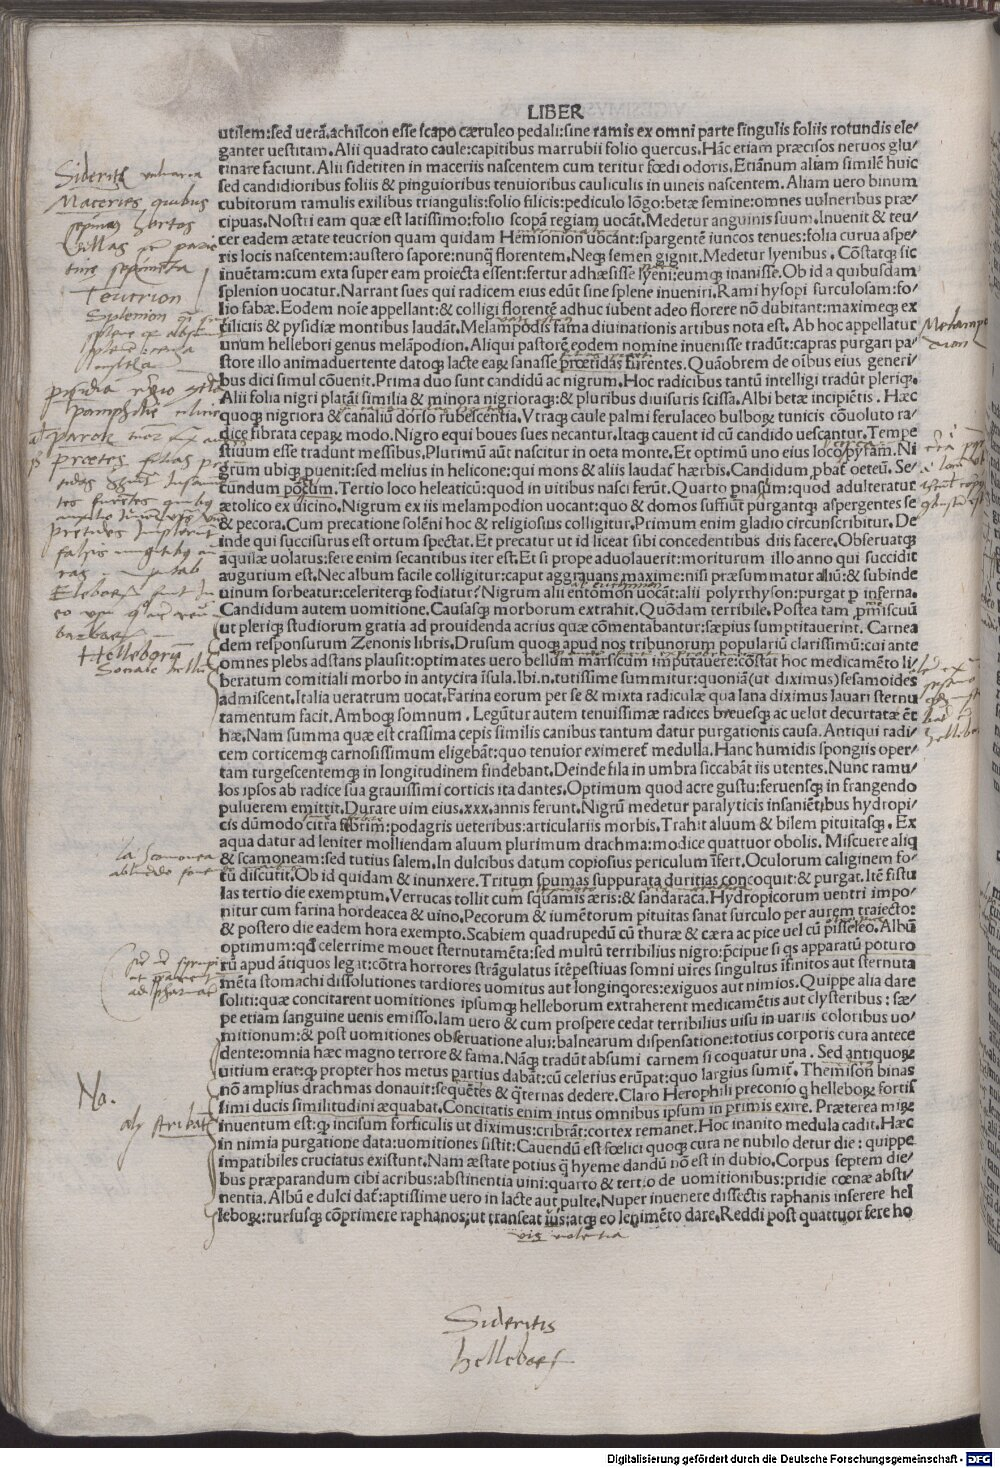 LIBER
utilem:sed uerã.achilcon esse scapo cæruleo pedali:sine ramis ex omni parte singulis foliis rotundis ele/
ganter uestitam.Alii quadrato caule:capitibus marrubii folio quercus.Hãc etiam præcisos neruos glu/
tinare faciunt.Alii sideriten in maceriis nascentem cum teritur fœdi odoris.Etiãnum aliam similẽ huic
sed candidioribus foliis & pinguioribus tenuioribus cauliculis in uineis nascentem.Aliam uero binum
cubitorum ramulis exilibus triangulis:folio filicis:pediculo lõgo:betæ semine:omnes uulneribus præ/
cipuas.Nostri eam quæ est latissimo:folio scopã regiam uocãt.Medetur anguinis suum.Inuenit & teu/
cer eadem ætate teucrion quam quidam Hemionion uocant:spargentẽ iuncos tenues:folia curua aspe/
ris locis nascentem:austero sapore:nunq̃ florentem.Neqꝫ semen gignit.Medetur lyenibus. Cõstatqꝫ sic
inuẽtam:cum exta super eam proiecta essent:fertur adhæsisse lyeni:eumqꝫ inanisse.Ob id a quibusdam
splenion uocatur.Narrant sues qui radicem eius edũt sine splene inueniri.Rami hysopi surculosam:fo/
lio fabæ.Eodem noĩe appellant:& colligi florentẽ adhuc iubent adeo florere nõ dubitant:maximeqꝫ ex
ciliciis & pysidiæ montibus laudãt.Melampodis fama diuinationis artibus nota est. Ab hoc appellatur
unum hellebori genus melãpodion.Aliqui pastorẽ eodem nomine inuenisse tradũt:capras purgari pa/
store illo animaduertente datoqꝫ lacte eaꝝ sanasse prœtidas furentes. Quãobrem de oĩbus eius generi/
bus dici simul cõuenit.Prima duo sunt candidũ ac nigrum.Hoc radicibus tantũ intelligi tradũt pleriqꝫ.
Alii folia nigri platãi similia & minora nigrioraqꝫ:& pluribus diuisuris scissa.Albi betæ incipiẽtis . Hæc
quoqꝫ nigriora & canaliũ dorso rubescentia.Vtraqꝫ caule palmi ferulaceo bulboꝝ tunicis cõuoluto ra/
dice fibrata cepaꝝ modo.Nigro equi boues sues necantur.Itaqꝫ cauent id cũ candido uescantur.Tempe
stiuum esse tradunt messibus.Plurimũ aũt nascitur in oeta monte.Et optimũ uno eius loco/pyram.Ni
grum ubiqꝫ puenit:sed melius in helicone:qui mons & aliis laudat̃ hærbis.Candidum ꝓbat̃ oeteũ.Se/
cundum põtcum.Tertio loco heleaticũ:quod in uitibus nasci ferũt.Quarto ꝑnasum:quod adulteratur
ætolico ex uicino.Nigrum ex iis melampodion uocant:quo & domos suffiũt purgantqꝫ aspergentes se
& pecora.Cum precatione solẽni hoc & religiosius colligitur.Primum enim gladio circunscribitur. De
inde qui succisurus est ortum spectat.Et precatur ut id liceat sibi concedentibus diis facere.Obseruatqꝫ
aquilæ uolatus:fere enim secantibus iter est.Et si prope aduolauerit:moriturum illo anno qui succidit
augurium est.Nec album facile colligitur:caput aggrauans maxime:nisi præsummatur aliũ:& subinde
uinum sorbeatur:celeriterqꝫ fodiatur.Nigrum alii entomon uocãt:alii polyrrhyson:purgat ꝑ inferna.
Candidum autem uomitione.Causasqꝫ morborum extrahit.Quõdam terribile.Postea tam ꝓmiscuũ
ut pleriqꝫ studiorum gratia ad prouidenda acrius quæ cõmentabantur:sæpius sumptitauerint. Carnea
dem responsurum Zenonis libris.Drusum quoqꝫ apud nos tribunorum populariũ clarissimũ:cui ante
omnes plebs adstans plausit:optimates uero bellum marsicum imputauere:cõstat hoc medicamẽto li/
beratum comitiali morbo in antycira ĩsula.Ibi.n.tutissime summitur:quoniã(ut diximus)sesamoides
admiscent.Italia ueratrum uocat.Farina eorum per se & mixta radiculæ qua lana diximus lauari sternu
tamentum facit.Amboqꝫ somnum . Legũtur autem tenuissimæ radices breuesqꝫ ac uelut decurtatæ ẽt
hæ.Nam summa quæ est crassima cepis similis canibus tantum datur purgationis causa.Antiqui radi/
cem corticemqꝫ carnosissimum eligebãt:quo tenuior eximeret̃ medulla.Hanc humidis spongiis oper/
tam turgescentemqꝫ in longitudinem findebant.Deinde fila in umbra siccabãt iis utentes.Nunc ramu/
los ipsos ab radice sũa grauissimi corticis ita dantes.Optimum quod acre gustu:feruensqꝫ in frangendo
puluerem emittit.Durare uim eius.xxx.annis ferunt.Nigrũ medetur paralyticis insaniẽtibus hydropi/
cis dũmodo citra febrim:podagris ueteribus:articulariis morbis.Trahit aluum & bilem pituitasqꝫ. Ex
aqua datur ad leniter molliendam aluum plurimum drachma:modice quattuor obolis. Miscuere aliq
& scamoneam:sed tutius salem.In dulcibus datum copiosius periculum ĩfert.Oculorum caliginem fo/
tũ discutit.Ob id quidam & inunxere.Tritum spumas suppurata duritias concoquit:& purgat.Itẽ fistu
las tertio die exemptum.Verrucas tollit cum squamis æris:& sandaraca.Hydropicorum uentri impo/
nitur cum farina hordeacea & uino.Pecorum & iumẽtorum pituitas sanat surculo per aurem traiecto:
& postero die eadem hora exempto.Scabiem quadrupedũ cũ thuræ & cæra ac pice uel cũ pisseleo.Albũ
optimum:qd̃ celerrime mouet sternutamẽta:sed multũ terribilius nigro:p̃cipue si qs apparatũ poturo
rũ apud ãtiquos legat:cõtra horrores strãgulatus ĩtẽpestiuas somni uires singultus ĩfinitos aut sternuta
mẽta stomachi dissolutiones tardiores uomitus aut longinqores:exiguos aut nimios. Quippe alia dare
soliti:quæ concitarent uomitiones ipsumqꝫ helleborum extraherent medicamẽtis aut clysteribus : sæ/
pe etiam sanguine uenis emisso.Iam uero & cum prospere cedat terribilius uisu in uariis coloribus uo/
mitionum:& post uomitiones obseruatione alui:balnearum dispensatione:totius corporis cura antece
dente:omnia hæc magno terrore & fama.Nãqꝫ tradũt absumi carnem si coquatur una . Sed antiquoꝝ
uitium erat:ꝙ propter hos metus partius dabãt:cũ celerius erũpat:quo largius sumit̃. Themison binas
nõ amplius drachmas donauit:sequẽtes & q̃ternas dedere. Claro Herophili preconio q helleboꝝ fortis
simi ducis similitudini æquabat.Concitatis enim intus omnibus ipsum in primis exire. Præterea miꝝ
inuentum est:ꝙ incisum forficulis ut diximus:cribrãt:cortex remanet.Hoc inanito medula cadit.Hæc
in nimia purgatione data:uomitiones sistit:Cauendũ est fœlici quoqꝫ cura ne nubilo detur die : quippe
impatibiles cruciatus existunt.Nam æstate potius q̃ hyeme dandũ nõ est in dubio.Corpus septem die/
bus præparandum cibi acribus:abstinentia uini:quarto & tertio de uomitionibus:pridie cœnæ absti/
nentia.Albũ e dulci dat̃:aptissime uero in lacte aut pulte.Nuper inuenere dissectis raphanis inserere hel
leboꝝ:rursusqꝫ cõprimere raphanos:ut transeat ius:atqꝫ eo lenimẽto dare.Reddi post quattuor fere ho
Maceries quibus
Teucrion
Splenion
Helleborũ
Na.
Sideritis
Digitalisierung gefördert durch die Deutsche Forschungsgemeinschaft - DFG